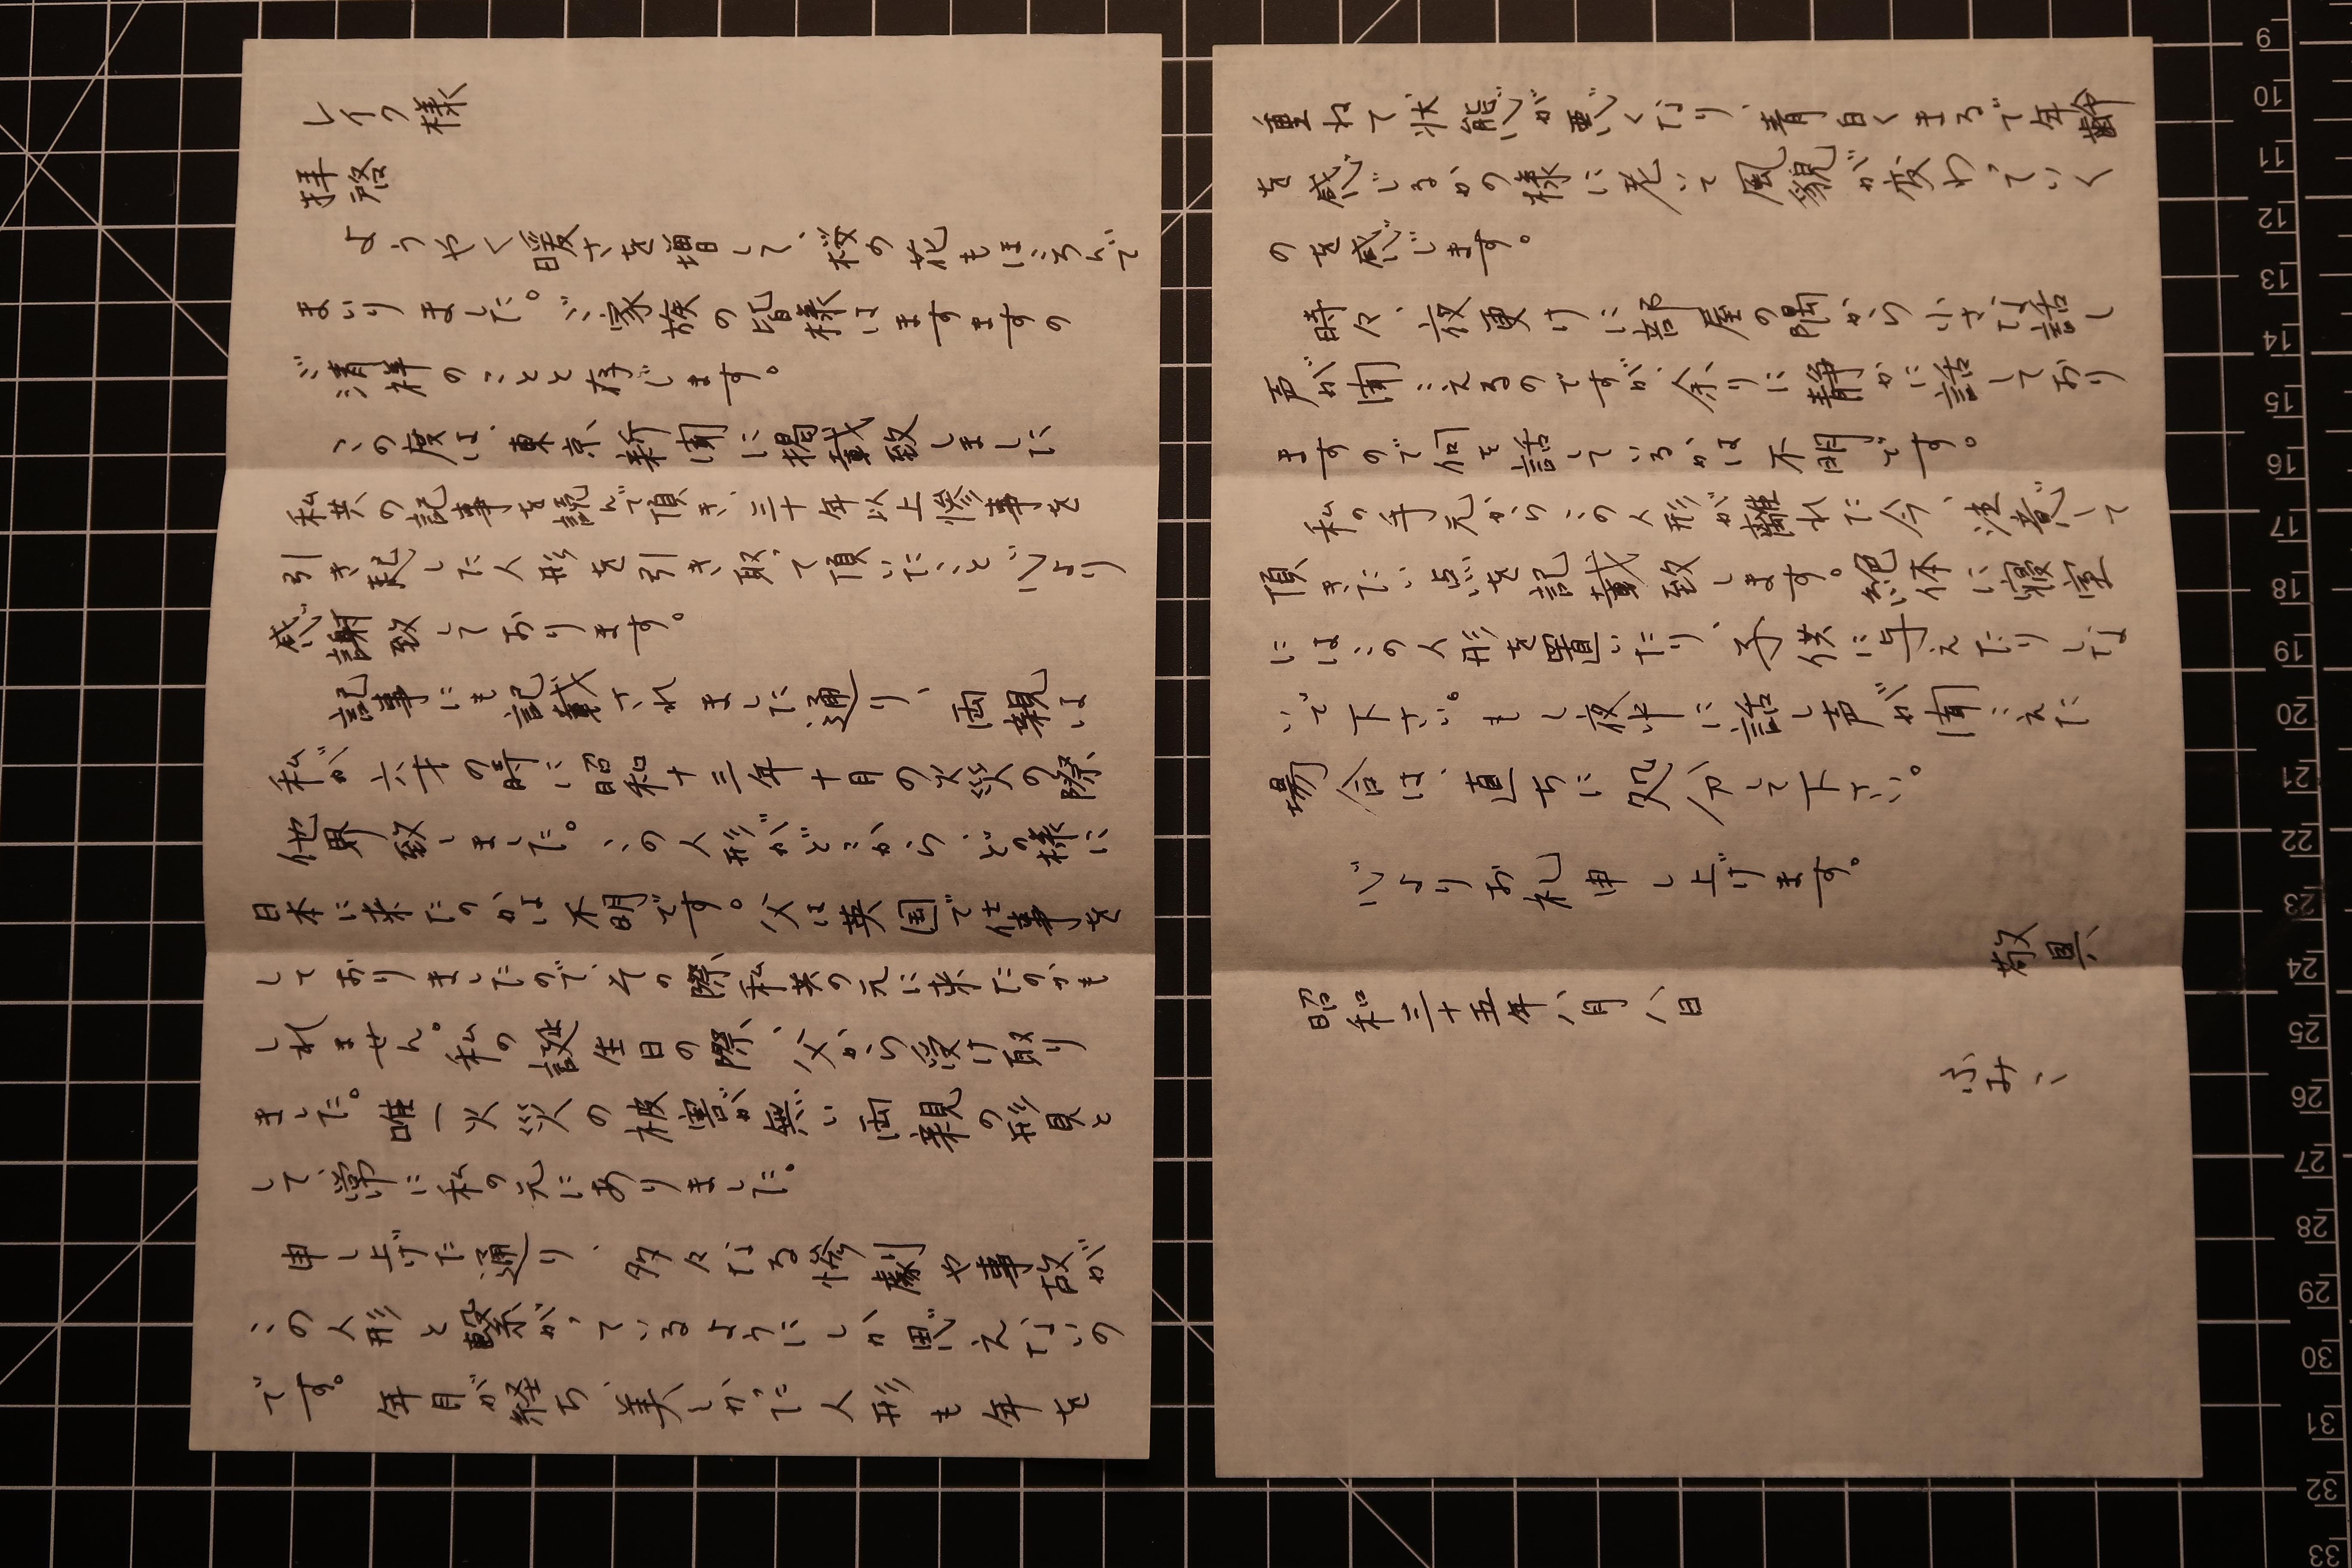 レイク様
拝啓
ようやく暖さを増して、桜の花もほころんで
まいりました。ご家族の皆様はますますの
ご清祥のことと存じます。
この度は、東京新聞に掲載致しました
私共の記事を読んで頂き、三十年以上惨事を
引き起した人形を引き取って頂いたこと心より
感謝致しております。
記事にも記載されました通り、両親は
私が六才の時に昭和十三年十月の火災の際、
他界致しました。この人形がどこから、どの様に
日本に来たのかは不明です。父は英国で仕事を
しておりましたので、その際、私共の元に来たのかも
しれません。私の誕生日の際、父から受け取り
ました。唯一火災の被害が無い両親の形見と
して、常に私の元にありました。
申し上げた通り、多々なる惨劇や事故が
この人形と繋がっているようにしか思えないの
です。年月が経ち、美しかった人形も年を
重ねて状態が悪くなり、青白くまるで年齢
を感じるかの様に老いて風貌が変わっていく
のを感じます。
時々、夜更けに部屋の隅から小さな話し
声が聞こえるのですが、余りに静かに話しており
ますので何を話しているかは不明です。
私の手元からこの人形が離れた今、注意して
頂きたい点を記載致します。絶体に寝室
にはこの人形を置いたり、子供に与えたりしな
いで下さい。もし夜中に話し声が聞こえた
場合は、直ちに処分して下さい。
心よりお礼申し上げます。
敬具、
昭和三十五年八月八日
ふみこ
9
10
11
12
13
14
15
16
17
18
19
20
21
22
23
24
25
26
27
28
29
30
31
32
33